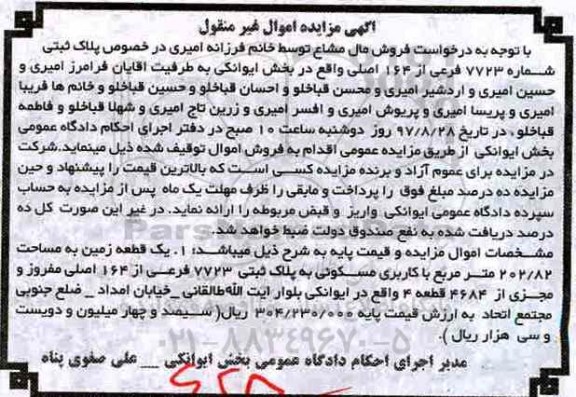 اگهی مزایده اموال غیر منقول
با توجه به درخواست فروش مال مشاع توسط خانم فرزانه امیری در خصوص پلاک ثبتی
شماره ۷۷۲۳ فرعی از ۱۶۴ اصلی واقع در بخش ایوانکی به طرفیت اقایان فرامرز امیری و
حسین امیری و اردشیر امیری و محسن قباخلو و احسان قباخلو و حسین قباخلو و خانم ها فریبا
امیری و پریسا امیری و پریوش امیری و افسر امیری و زرین تاج امیری و شهلا قباخلو و فاطمه
قباخلو ، در تاریخ ۹۷/۸/۲۸ روز دوشنبه ساعت ۱۰ صبح در دفتر اجرای احکام دادگاه عمومی
بخش ایوانکی از طریق مزایده عمومی اقدام به فروش اموال توقیف شده ذیل مینماید.شرکت
در مزایده برای عموم آزاد و برنده مزایده کسی است که بالاترین قیمت را پیشنهاد و حین
مزایده ده درصد مبلغ فوق را پرداخت و مابقی را ظرف مهلت یک ماه پس از مزایده به حساب
سپرده دادگاه عمومی ایوانکی واریز و قبض مربوطه را ارائه نماید. در غیر این صورت کل ده
درصد دریافت شده به نفع صندوق دولت ضبط خواهد شد.
مشخصات اموال مزایده و قیمت پایه به شرح ذیل میباشد: ۱. یک قطعه زمین به مساحت
۲۰۲/۸۲ متر مربع با کاربری مسکونی به پلاک ثبتی ۷۷۲۳ فرعی از ۱۶۴ اصلی مفروز و
مجزی از ۴۶۸۴ قطعه ۴ واقع در ایوانکی بلوار ایت الله طالقانی _ خیابان امداد _ ضلع جنوبی
مجتمع اتحاد به ارزش قیمت پایه ۳۰۴/۲۳۰/۰۰۰ ریال( سیصد و چهار میلیون و دویست
و سی هزار ریال ).
۰۲۱-۸۸۳۴۹۶۷۰-۵
مدیر اجرای احکام دادگاه عمومی بخش ایوانکی __ علی صفوی پناه